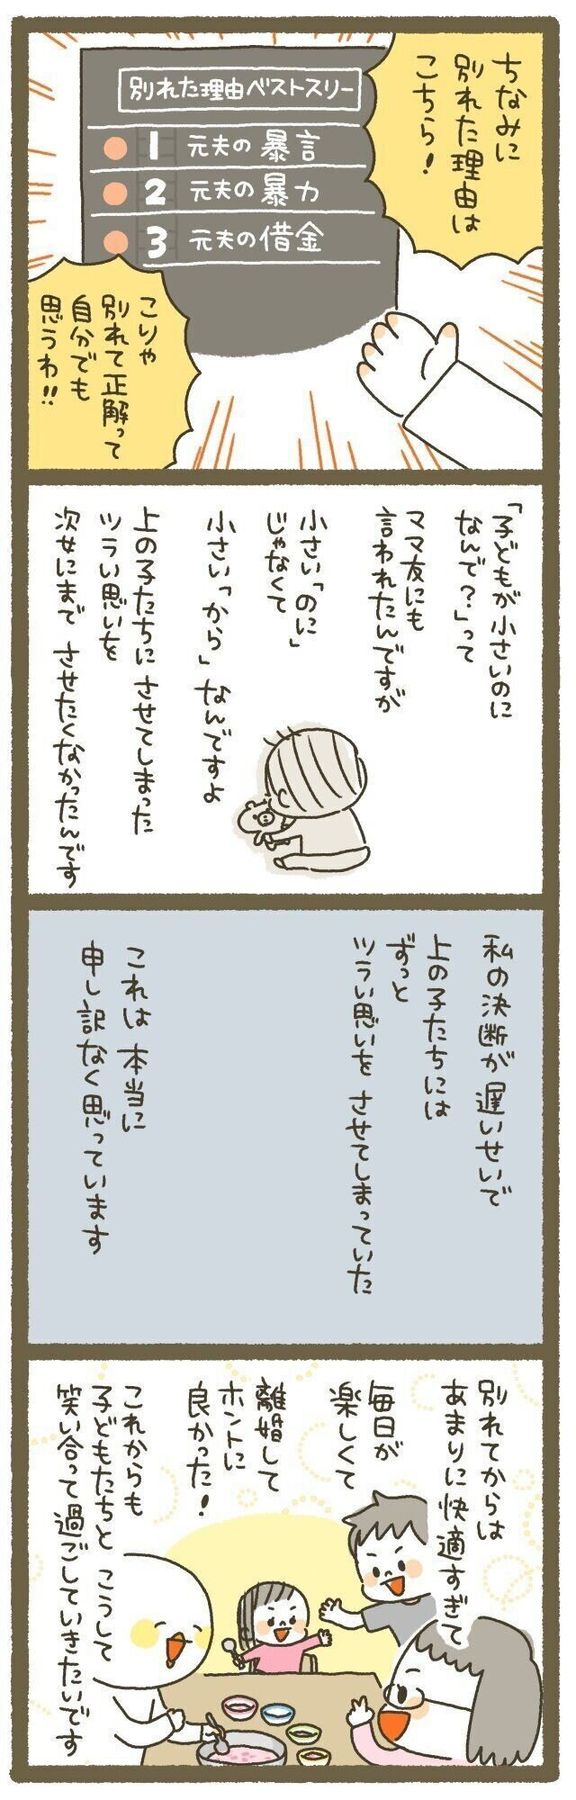 ちなみに
別れた理由は
こちら!
別れた理由ベストスリー
1 元夫の暴言
2 元夫の暴力
3 元夫の借金
こりゃ
別れて正解って
自分でも
思うわ!!
「子どもが小さいのに
なんで?」って
ママ友にも
言われたんですが
小さい「のに」
じゃなくて
小さい「から」なんですよ
上の子たちにさせてしまった
ツラい思いを
次女にまでさせたくなかったんです
私の決断が遅いせいで
上の子たちには
ずっと
ツラい思いをさせてしまっていた
これは本当に
申し訳なく思っています
別れてからは
あまりに快適すぎて
毎日が
楽しくて
離婚して
ホントに
良かった!
これからも
子どもたちとこうして
笑い合って過ごしていきたいです